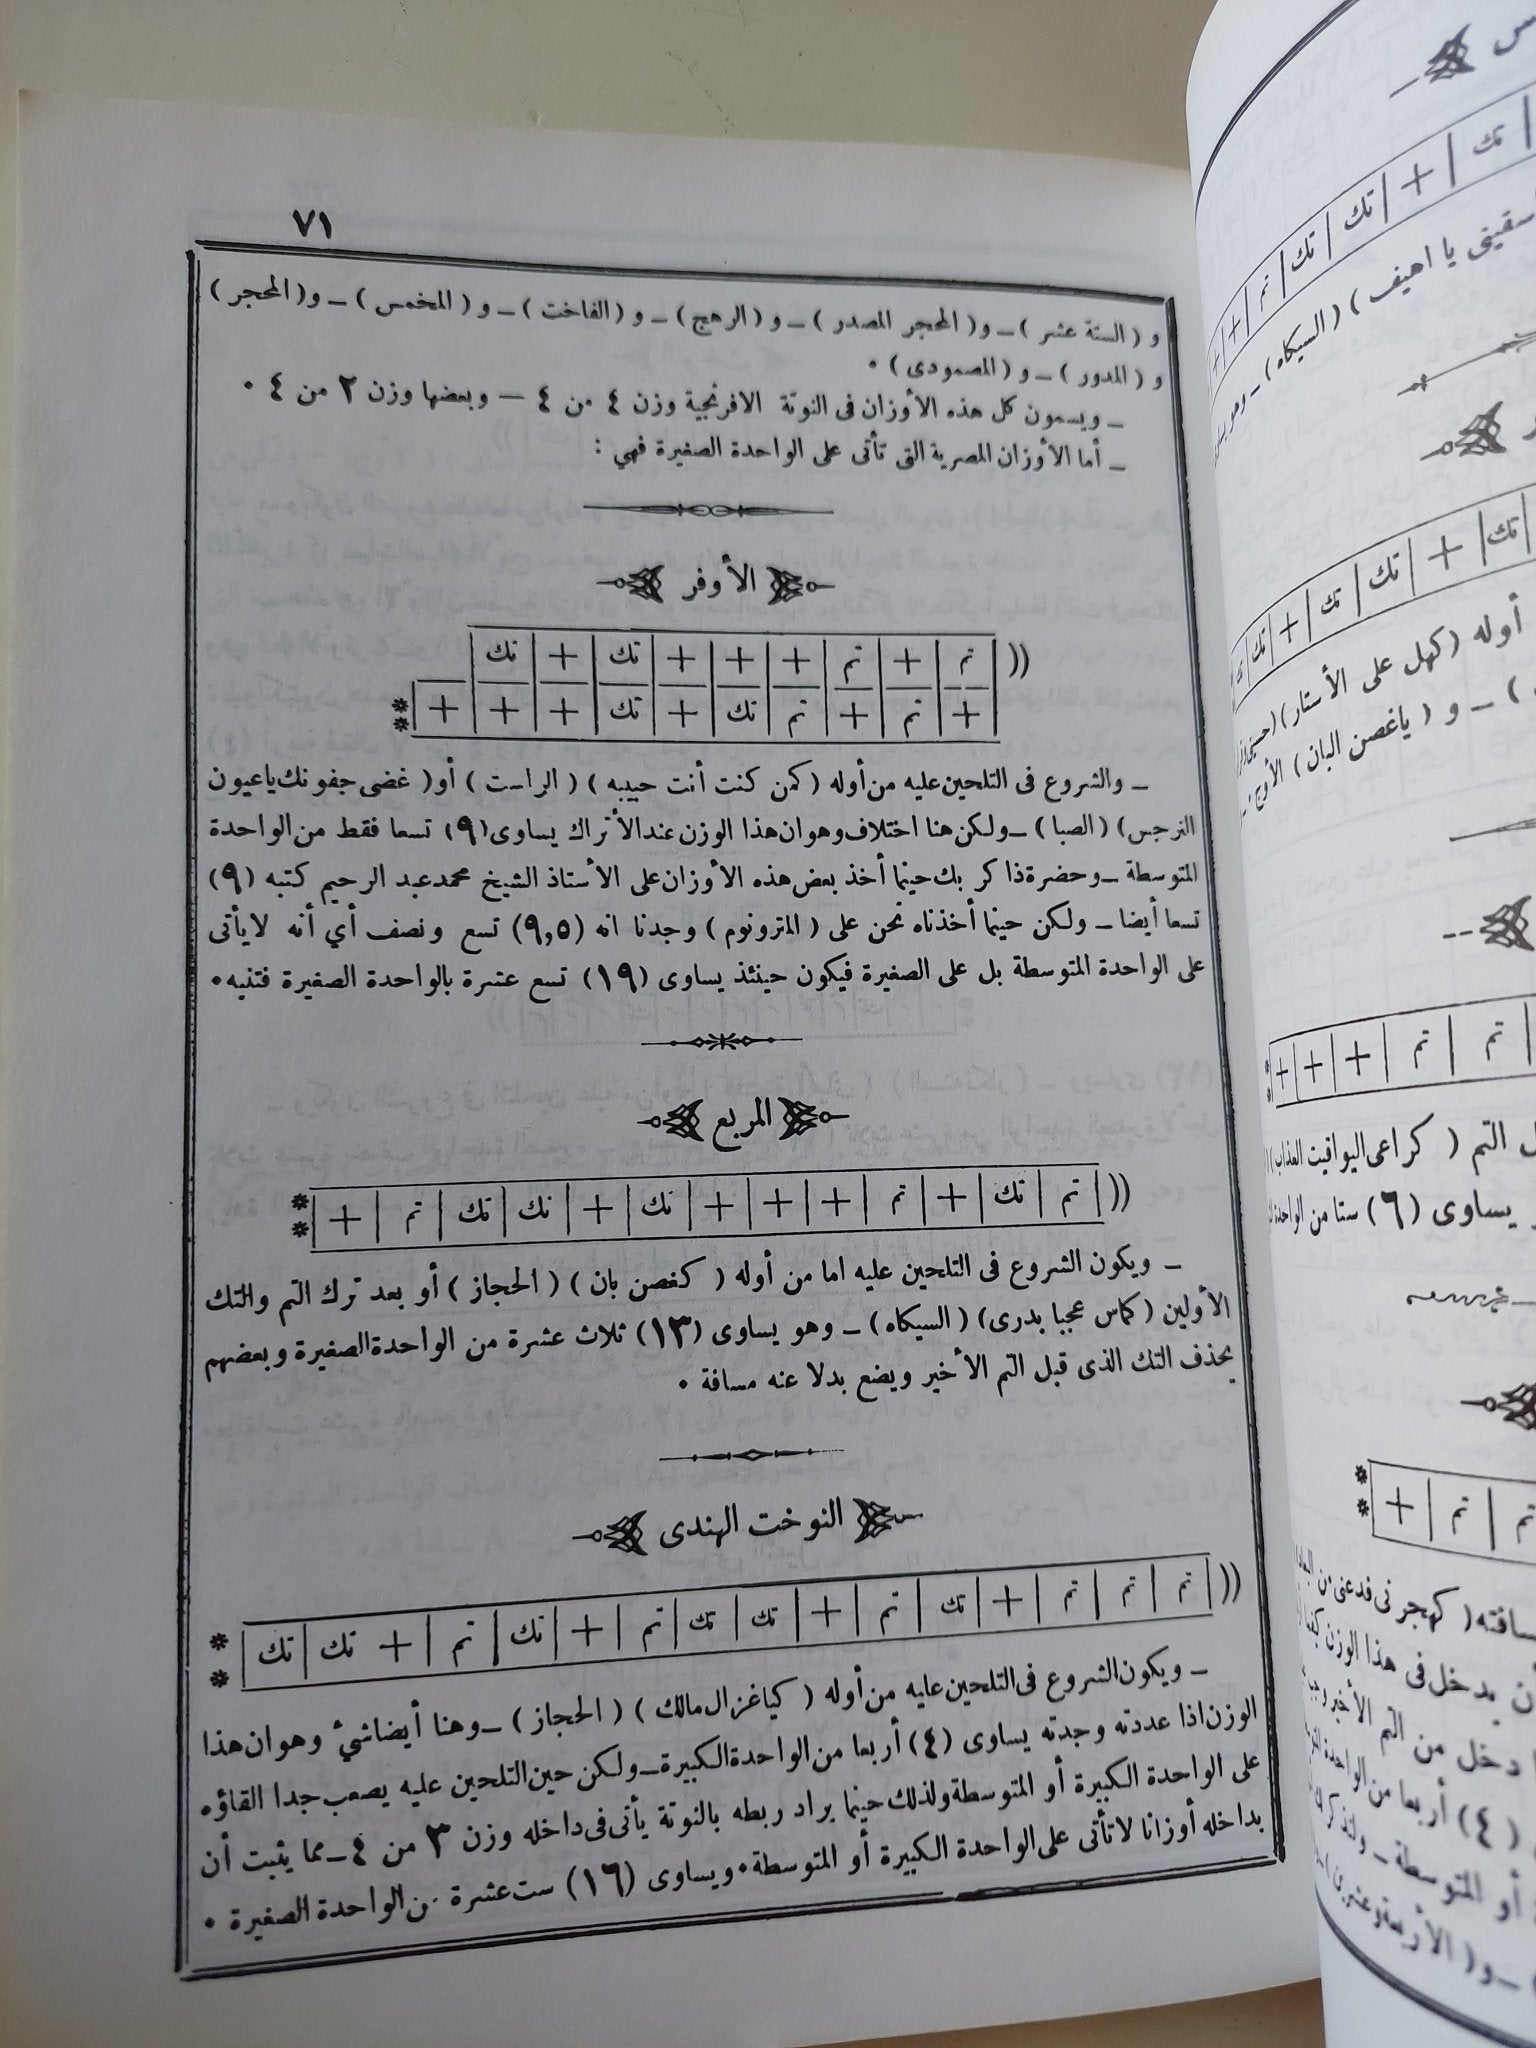 ٧١
و ( الستة عشر ) ــ و( المحجر المصدر ) ــ و ( الرهج ) ــ و ( الفاخت ) ــ و ( المخمس ) ــ و( المحجر )
و ( المدور ) ــ و ( المصمودى ) ٠
ــ ويسمون كل هذه الأوزان فى النوتة الافرنجية وزن ٤ من ٤ ــ وبعضها وزن ٢ من ٤ ٠
ــ أما الأوزان المصرية التى تأتى على الواحدة الصغيرة فهي :
الأوفر
(( تم | + | تم | + | + | + | تك | + | تك
+ | تم | + | تم | تك | + | تك | + | + | + **
ــ والشروع فى التلحين عليه من أوله ( كمن كنت أنت حبيبه ) ( الراست ) أو( غضى جفونك ياعيون
النرجس) ( الصبا ) ــ ولكن هنا اختلاف وهو ان هذا الوزن عند الأتراك يساوى (٩) تسعا فقط من الواحدة
المتوسطة ــ وحضرة ذاكر بك حينما أخذ بعض هذه الأوزان على الأستاذ الشيخ محمد عبد الرحيم كتبه (٩)
تسعا أيضا ــ ولكن حينما أخذناه نحن على ( المترونوم ) وجدنا انه (٩,٥) تسع ونصف أي أنه لا يأتى
على الواحدة المتوسطة بل على الصغيرة فيكون حينئذ يساوى (١٩) تسع عشرة بالواحدة الصغيرة فتنبه ٠
المربع
(( تم | تك | + | تم | + | + | + | تك | + | تك | تك | تم | + **
ــ ويكون الشروع فى التلحين عليه اما من أوله ( كغصن بان ) ( الحجاز ) أو بعد ترك التم والتك
الأولين ( كماس عجبا بدرى) ( السيكاه) ــ وهو يساوى (١٣) ثلاث عشرة من الواحدة الصغيرة وبعضهم
يحذف التك الذى قبل التم الأخير ويضع بدلا عنه مسافة ٠
النوخت الهندى
(( تم | تم | تم | + | تك | تم | + | تك | تك | تم | + | تك | تم | + تك | تك **
ــ ويكون الشروع فى التلحين عليه من أوله ( كياغزال مالك ) ( الحجاز ) ــ وهنا أيضا شيء وهو ان هذا
الوزن اذا عددته وجدته يساوى (٤) أربعا من الواحدة الكبيرة ــ ولكن حين التلحين عليه يصعب جدا القاؤه
على الواحدة الكبيرة أو المتوسطة ولذلك حينما يراد ربطه بالنوتة يأتى فى داخله وزن ٣ من ٤ ــ مما يثبت أن
بداخله أوزانا لا تأتى على الواحدة الكبيرة أو المتوسطة ٠ ويساوى (١٦) ست عشرة من الواحدة الصغيرة ٠
تك | + | تك | تك | تم | + | +
سقينى يا اهيف ) ( السيكاه ) ــ وهو
تك | + | تك | تك | + | تك | تك
أوله ( كهل على الأستار )
ــ و ( ياغصن البان ) الأوج
تم | تم | + | + | +
التم ( كراعى اليواقيت العذاب )
يساوى (٦) ستا من الواحدة
تم | تم | + **